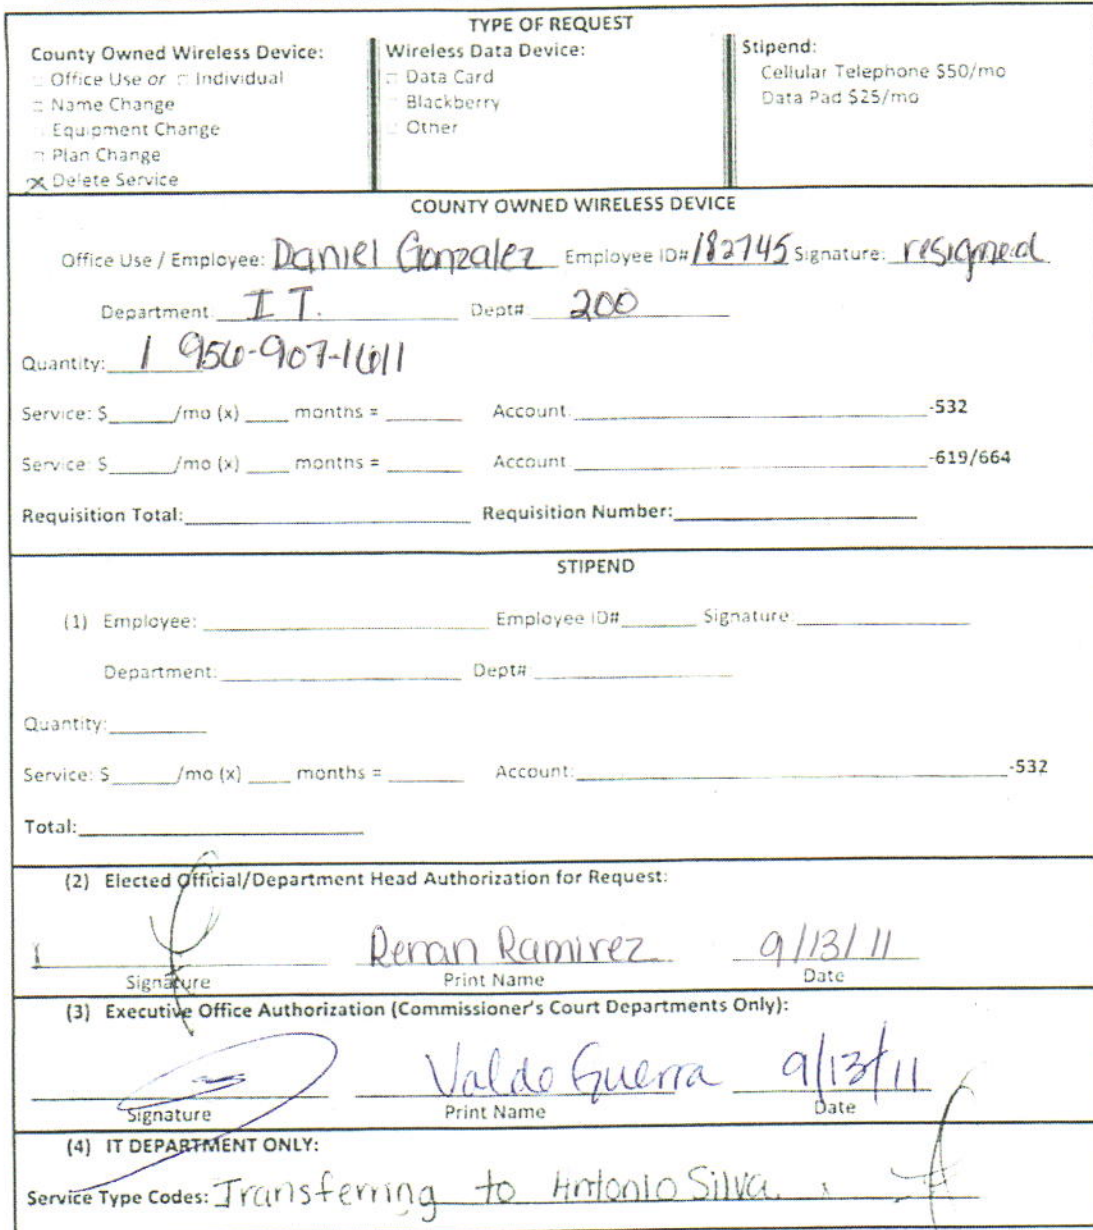 TYPE OF REQUEST
County Owned Wireless Device:
Office Use or Individual
Name Change
Equipment Change
Plan Change
X Delete Service
Wireless Data Device:
Data Card
Blackberry
Other
Stipend:
Cellular Telephone $50/mo
Data Pad $25/mo
COUNTY OWNED WIRELESS DEVICE
Office Use / Employee: Daniel Gonzalez Employee ID# 182745 Signature: resigned
Department: I.T. Dept#: 200
Quantity: 1 956-907-1611
Service: $ /mo (x) months = Account: -532
Service: $ /mo (x) months = Account: -619/664
Requisition Total: Requisition Number:
STIPEND
(1) Employee: Employee ID# Signature:
Department: Dept#:
Quantity:
Service: $ /mo (x) months = Account: -532
Total:
(2) Elected Official/Department Head Authorization for Request:
Renan Ramirez 9/13/11
Signature Print Name Date
(3) Executive Office Authorization (Commissioner's Court Departments Only):
Valde Guerra 9/13/11
Signature Print Name Date
(4) IT DEPARTMENT ONLY:
Service Type Codes: Transferring to Antonio Silva